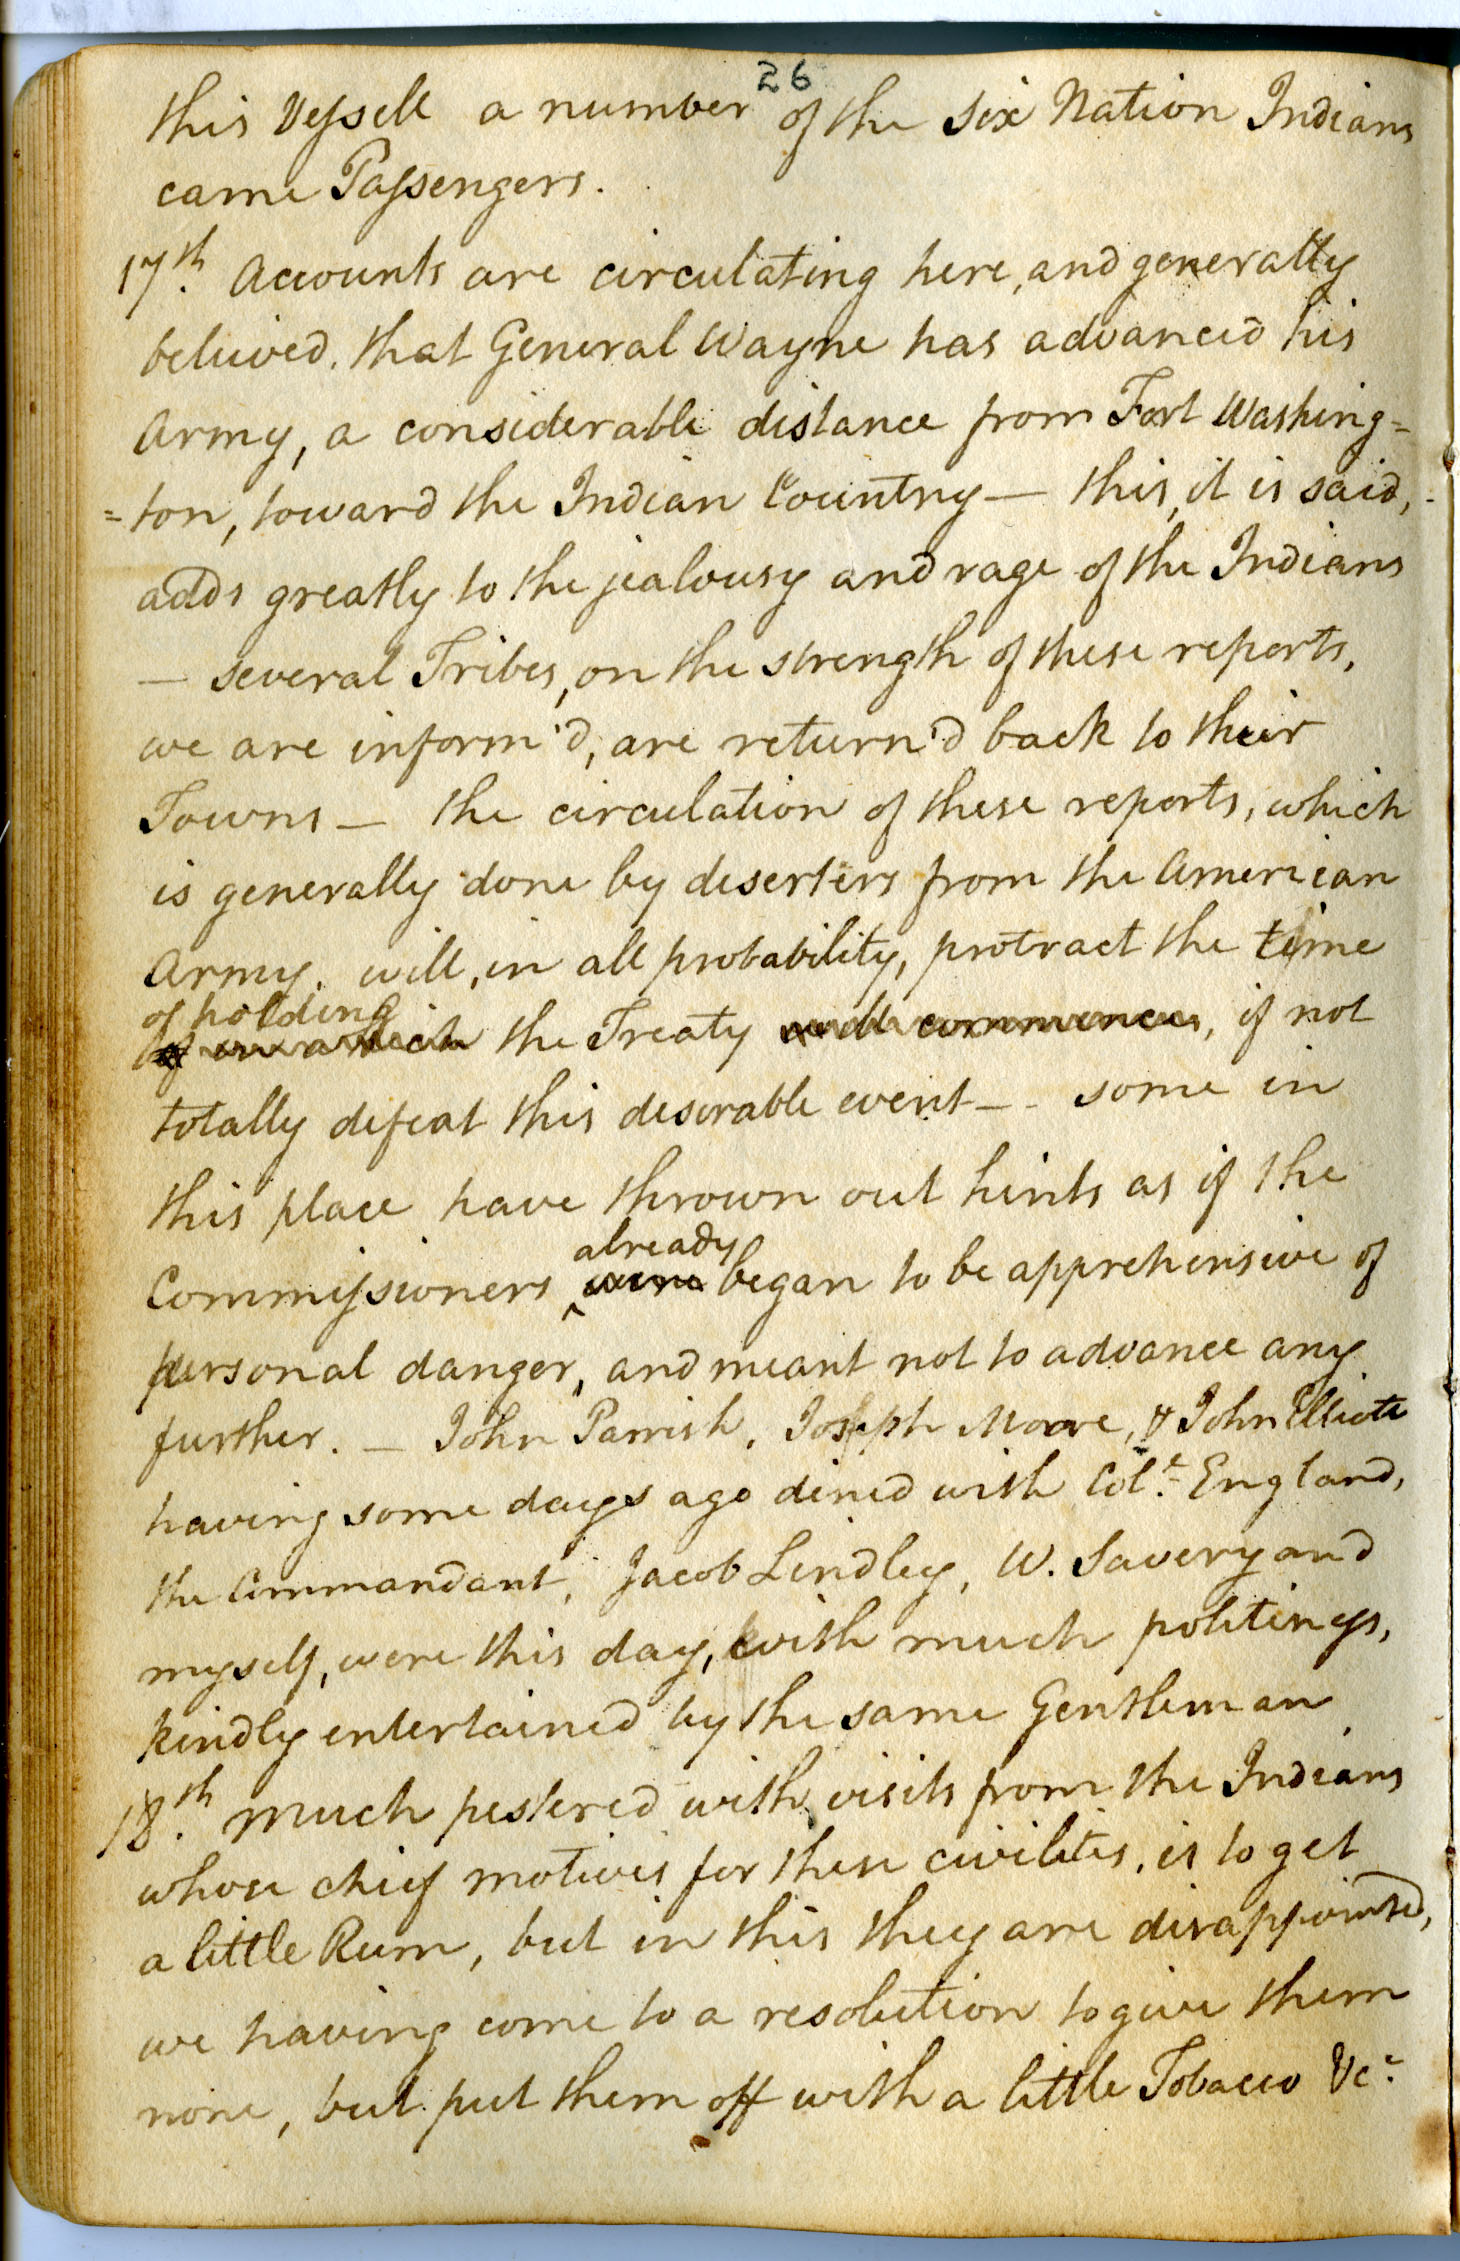 26
this Vessell a number of the Six Nation Indians
came Passengers.
17th. Accounts are circulating here, and generally
believed. that General Wayne has advanced his
Army, a considerable distance from Fort Washing=
=ton, toward the Indian Country — this, it is said,
adds greatly to the jealousy and rage of the Indians
— several Tribes, on the strength of these reports,
we are inform'd, are return'd back to their
Towns — the circulation of these reports, which
is generally done by deserters from the American
Army, will, in all probability, protract the time
of holding
the Treaty will commence, if not
totally defeat this desirable event — some in
this place have thrown out hints as if the
already
Commissioners were began to be apprehensive of
personal danger, and meant not to advance any
further. — John Parrish, Joseph Moore, & John Elliott
having some days ago dined with Col. England,
the Commandant, Jacob Lindley, W. Savery and
myself, were this day, with much politeness,
kindly entertained by the same Gentleman
18th. Much pestered with visits from the Indians
whose chief motives for these civilities, is to get
a little Rum, but in this they are disappointed,
we having come to a resolution to give them
none, but put them off with a little Tobacco &c.